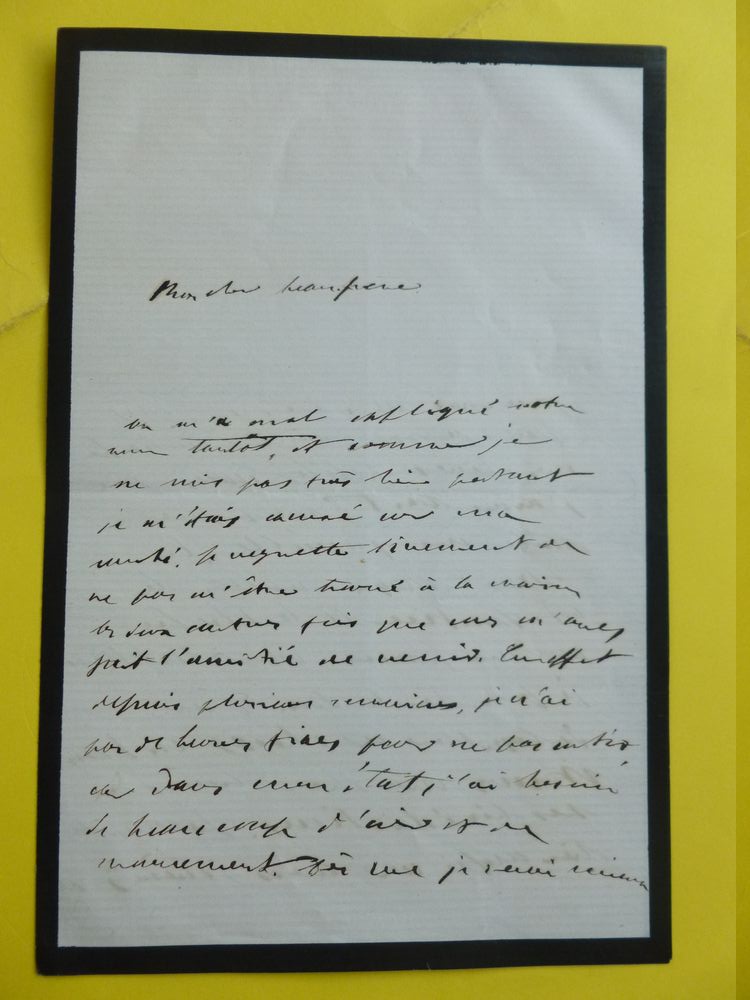 Mon cher beaufrere
on m'a mal expliqué votre
nom tantôt, et comme je
ne suis pas très bien portant
je m'étais excusé sur ma
santé. je regrette vivement de
ne pas m'être trouvé à la maison
les deux autres fois que vous m'avez
fait l'amitié de venir. En effet
depuis plusieurs semaines, je n'ai
pas de heures fixes pour ne pas
car dans mon état, j'ai besoin
de beaucoup d'air et de
mouvement. Dès que je serai